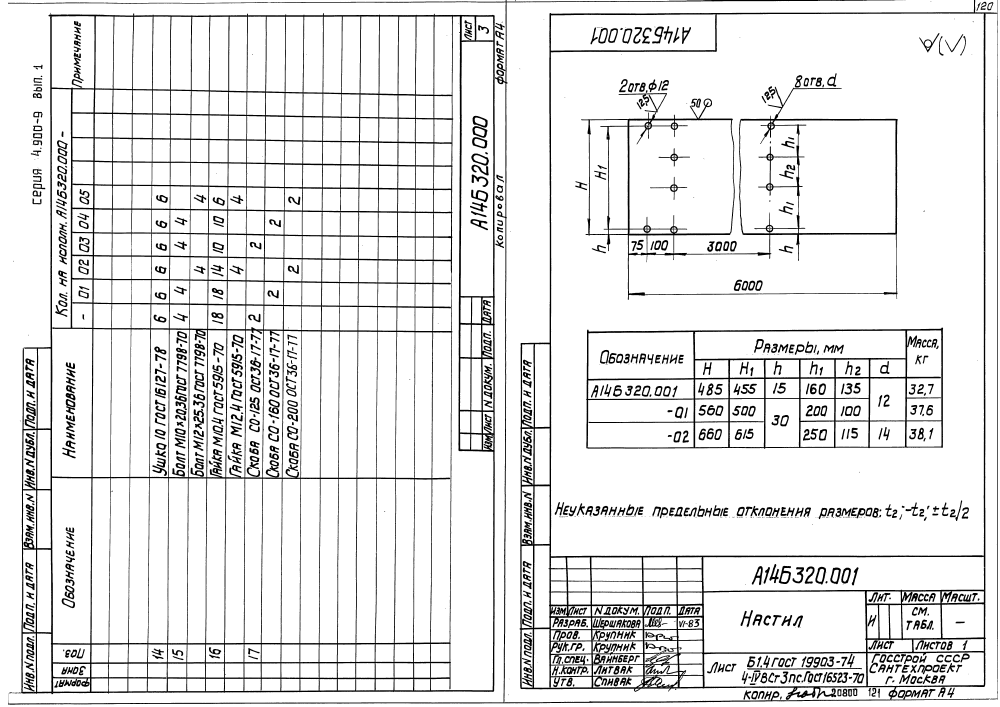 серия 4.900-9 вып. 1
Формат
Зона
Поз.
Обозначение
Наименование
Кол. на исполн. А14Б320.000 -
- 01 02 03 04 05
Примечание
14 Ушко 10 ГОСТ 16127-78 6 6 6 6 6 6
15 Болт М10×20.36 ГОСТ 7798-70 4 4 4 4
Болт М12×25.36 ГОСТ 7798-70 4 4
16 Гайка М10.4 ГОСТ 5915-70 18 18 14 10 10 6
Гайка М12.4 ГОСТ 5915-70 4 4
17 Скоба СО-125 ОСТ 36-17-77 2 2
Скоба СО-160 ОСТ 36-17-77 2 2
Скоба СО-200 ОСТ 36-17-77 2 2
Инв.N подл. Подп. и дата Взам.инв.N Инв.N дубл. Подп. и дата
Изм Лист N докум. Подп. Дата
А14Б320.000
Лист
3
Копировал
Формат А4
120
А14Б320.001
2отв.ф12
8отв.d
12,5
50
12,5
H
H1
h
h1
h2
h1
h
75 100 3000
6000
Обозначение
Размеры, мм
Масса, кг
H H1 h h1 h2 d
А14Б320.001 485 455 15 160 135 12 32,7
-01 560 500 30 200 100 37,6
-02 660 615 250 115 14 38,1
Неуказанные предельные отклонения размеров: t2; -t2; ±t2/2
Инв.N подл. Подп. и дата Взам.инв.N Инв.N дубл. Подп. и дата
А14Б320.001
Изм Лист N докум. Подп. Дата
Разраб. Шершакова VI-83
Пров. Крупник
Рук.гр. Крупник
Гл.спец. Вайнберг
Н.контр. Литвак
Утв. Спивак
Настил
Лит. Масса Масшт.
И см. табл. —
Лист Листов 1
Лист Б1.4 ГОСТ 19903-74
4-IV ВСт 3пс. ГОСТ 16523-70
Госстрой СССР
Сантехпроект
г. Москва
Копир. 20800 121 Формат А4